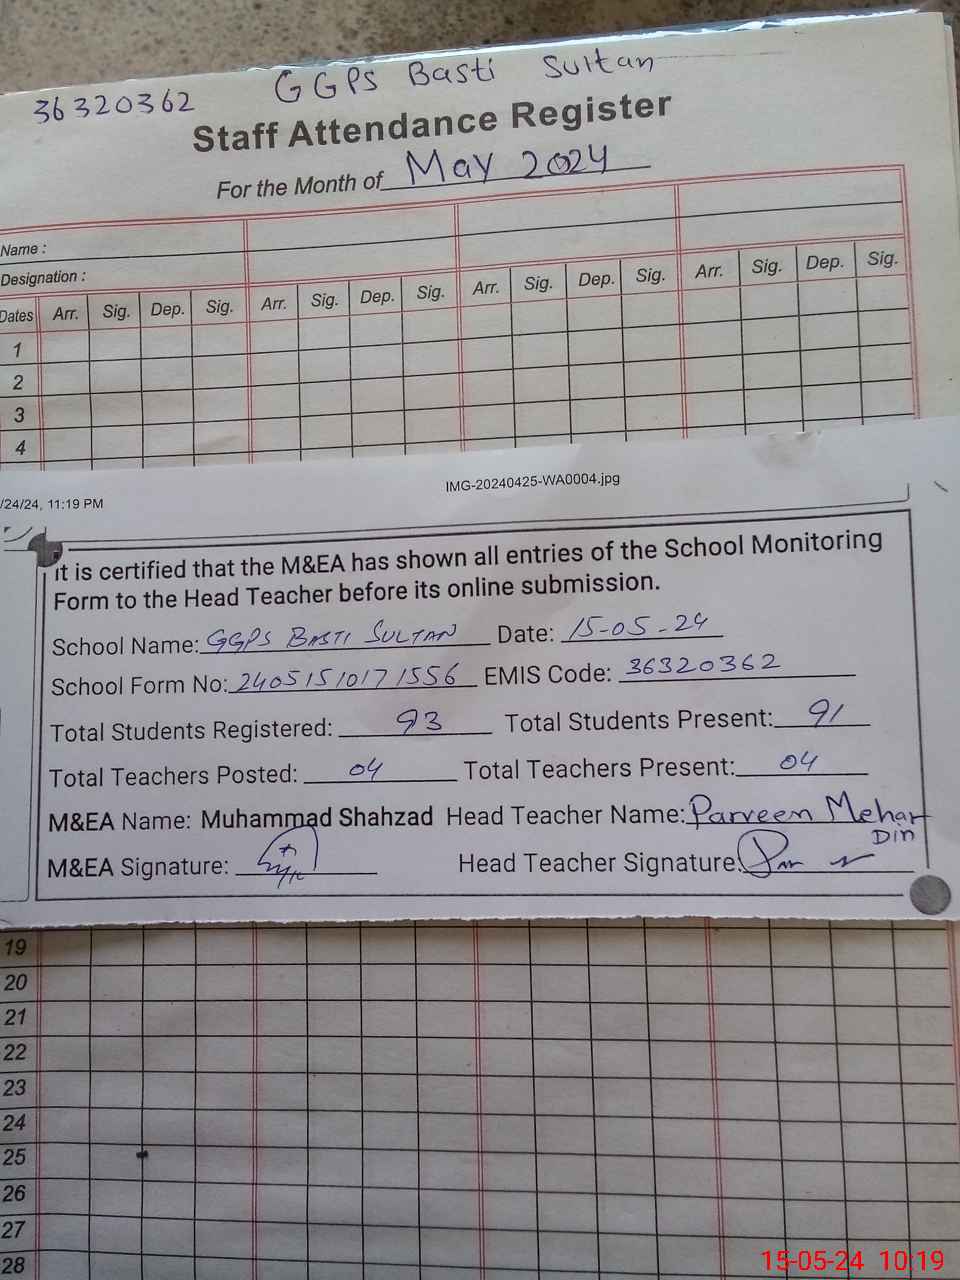 36320362 GGPS Basti Sultan
Staff Attendance Register
For the Month of May 2024
Name :
Designation :
Dates Arr. Sig. Dep. Sig. Arr. Sig. Dep. Sig. Arr. Sig. Dep. Sig. Arr. Sig. Dep. Sig.
1
2
3
4
/24/24, 11:19 PM IMG-20240425-WA0004.jpg
It is certified that the M&EA has shown all entries of the School Monitoring
Form to the Head Teacher before its online submission.
School Name: GGPS BASTI SULTAN Date: 15-05-24
School Form No: 24051510171556 EMIS Code: 36320362
Total Students Registered: 93 Total Students Present: 91
Total Teachers Posted: 04 Total Teachers Present: 04
M&EA Name: Muhammad Shahzad Head Teacher Name: Parveen Mehar
Din
M&EA Signature: Head Teacher Signature:
19
20
21
22
23
24
25
26
27
28
15-05-24 10:19